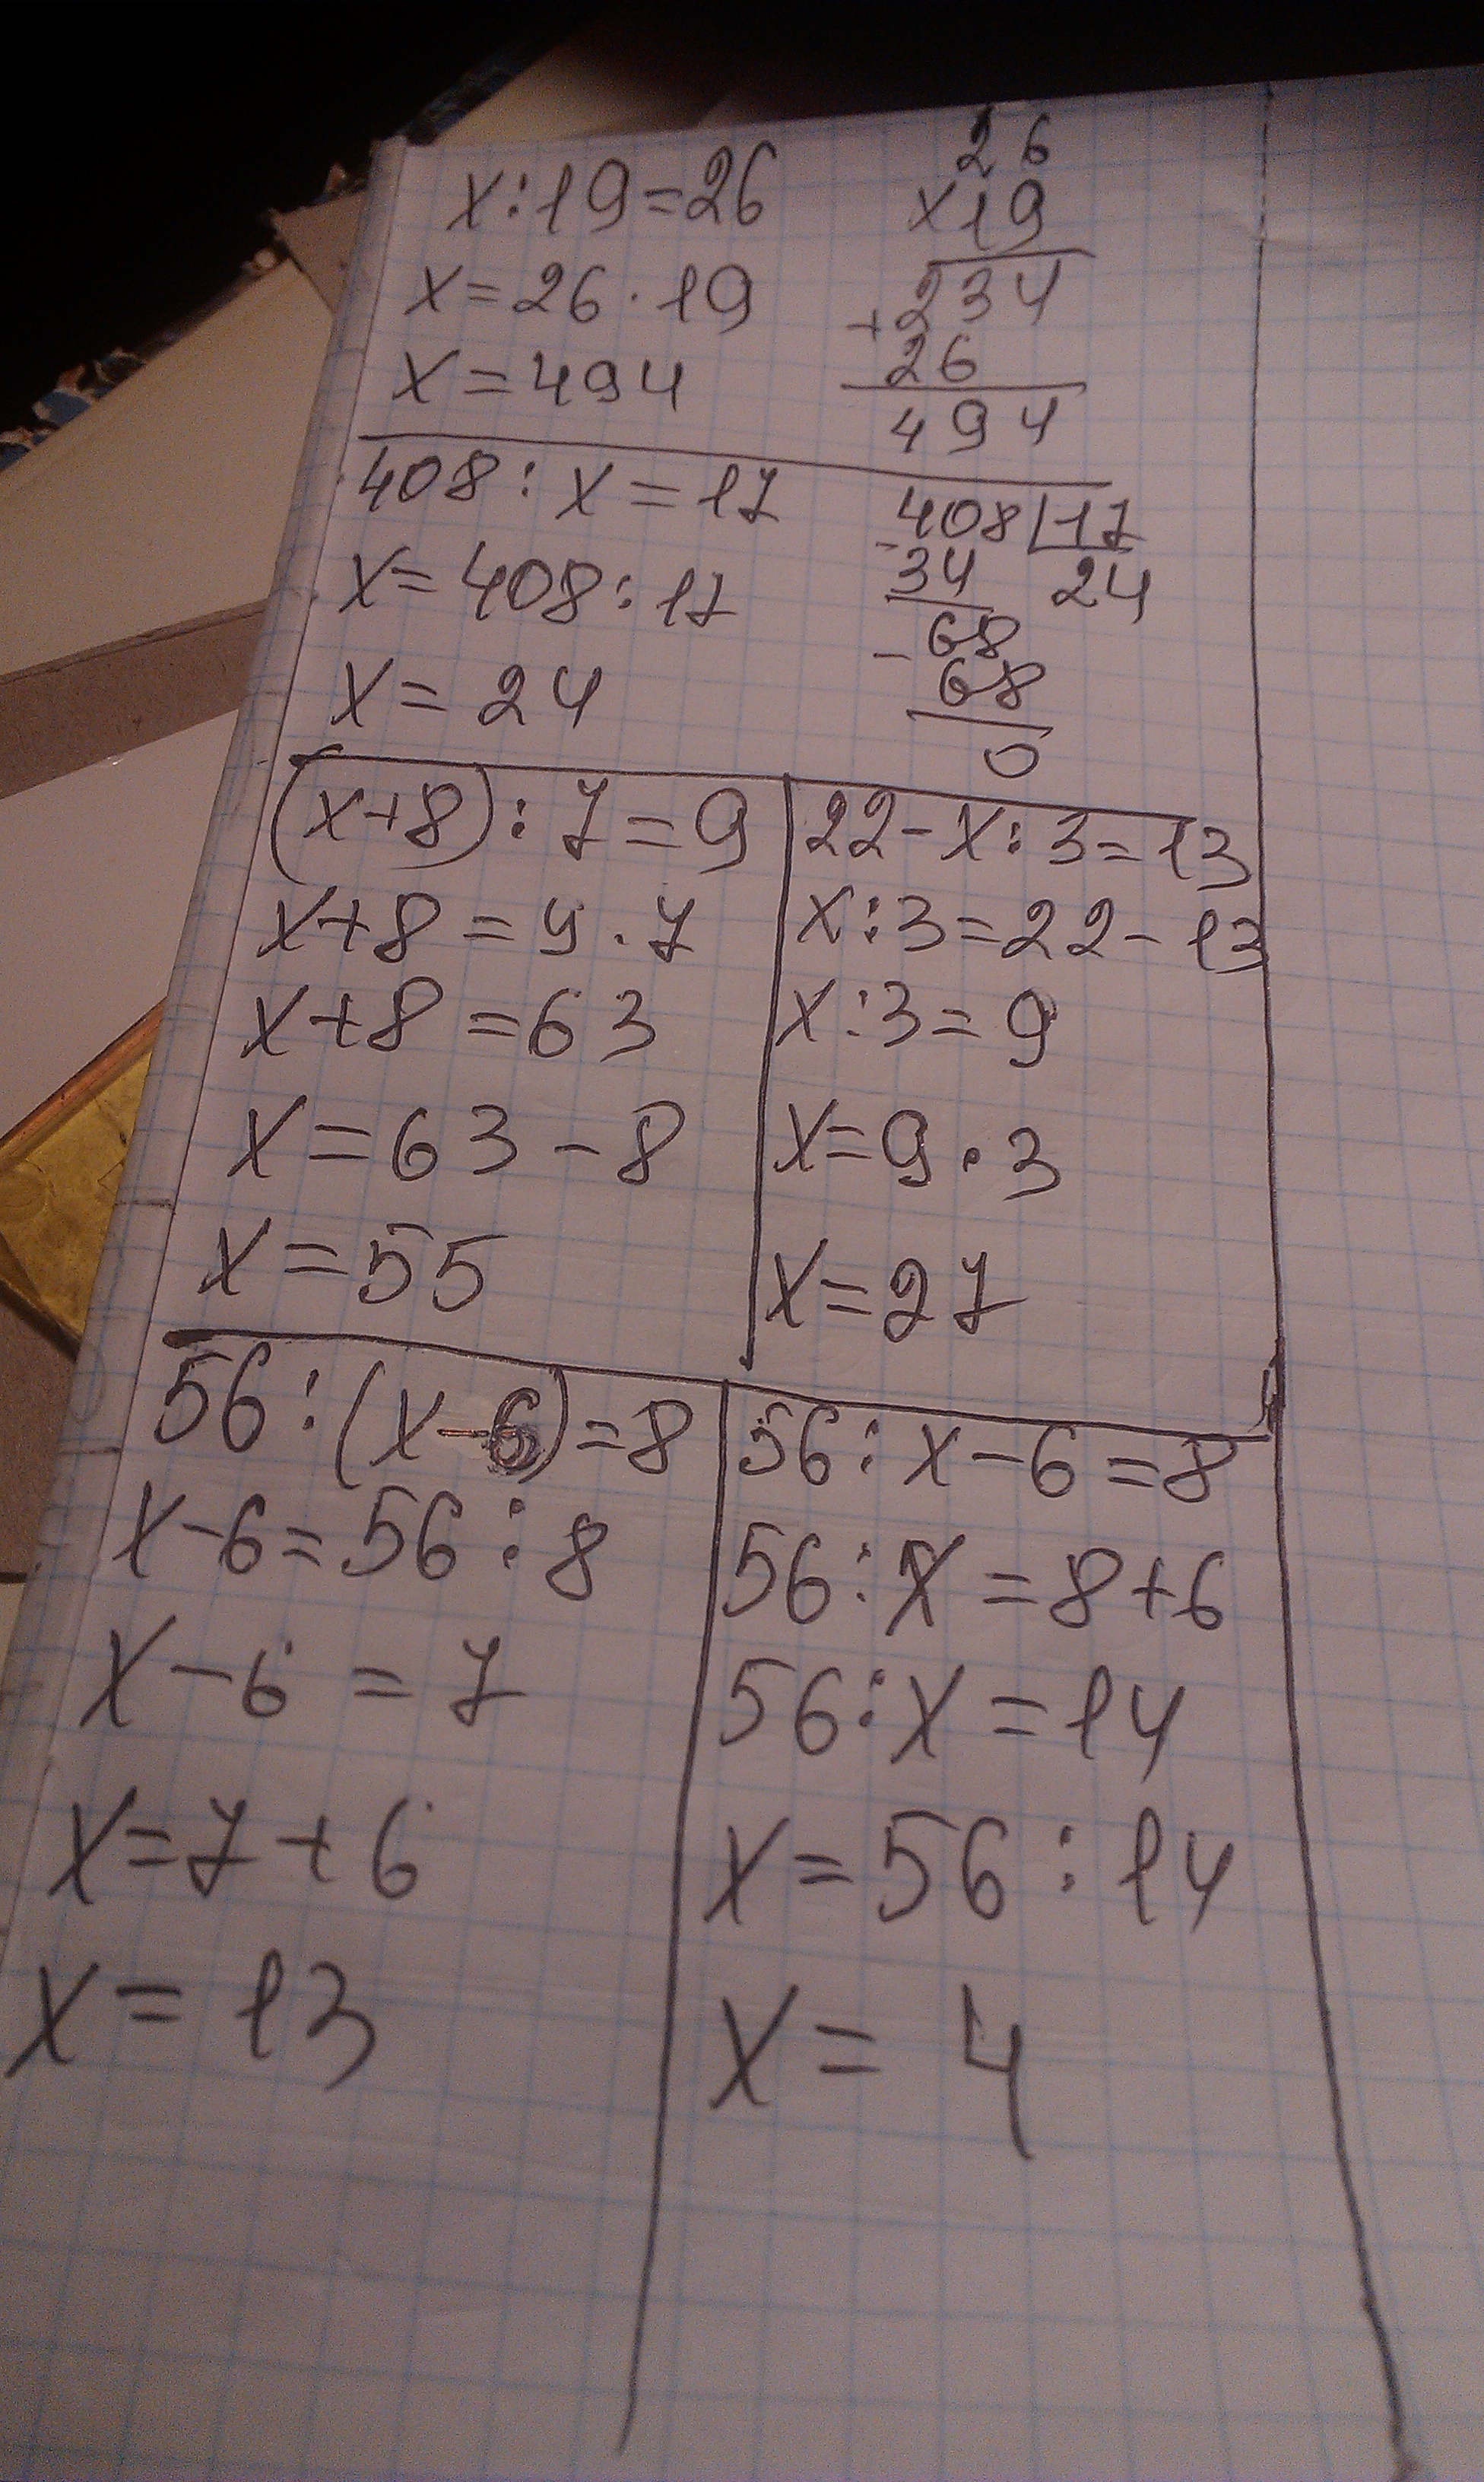 x:19=26
x=26·19
x=494
26
x19
+234
26
494
408:x=17
x=408:17
x=24
-408|17
34 24
-68
68
0
(x+8):7=9
x+8=9·7
x+8=63
x=63-8
x=55
22-x:3=13
x:3=22-13
x:3=9
x=9·3
x=27
56:(x-6)=8
x-6=56:8
x-6=7
x=7+6
x=13
56:x-6=8
56:x=8+6
56:x=14
x=56:14
x=4